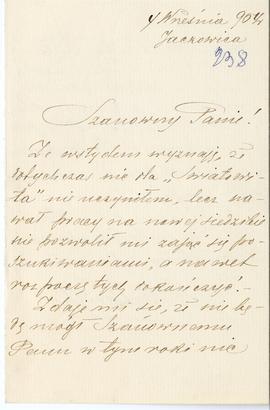 4 Września 904
Jackowica
238
Szanowny Panie!
Ze wstydem wyznaję, że
dotychczas nic dla "Świato wi-
ta" nie uczyniłem, lecz na-
wał pracy na nowej siedzibie
nie pozwolił mi zająć się po-
szukiwaniami, a nawet
rozpoczętych dokończyć! -
Zdaje mi się, że nie bę-
dę mógł Szanownemu
Panu w tym roku nic